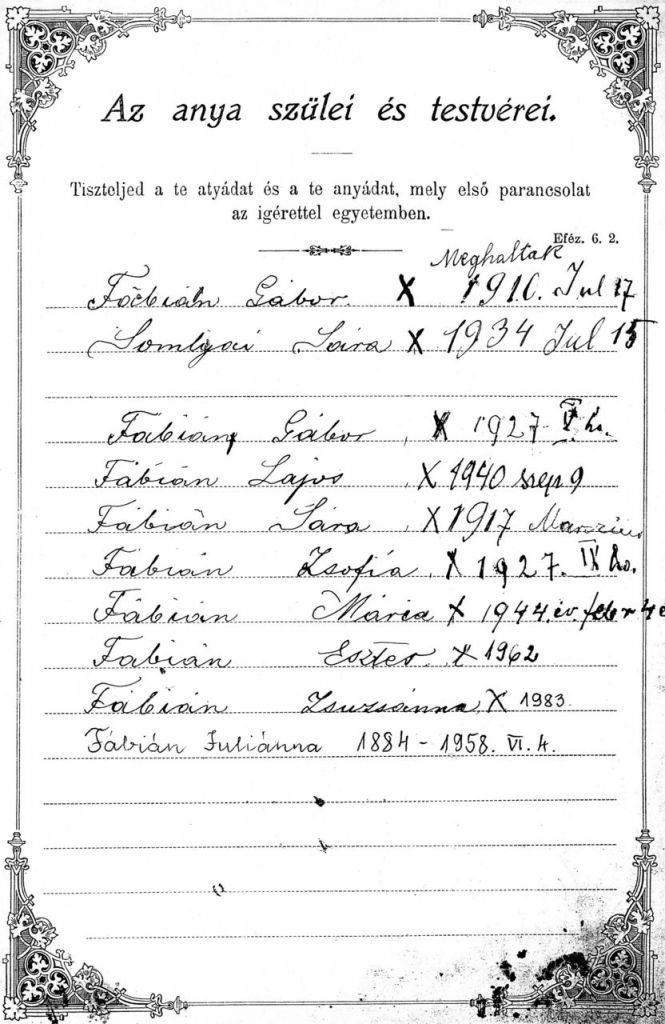 Az anya szülei és testvérei.
Tiszteljed a te atyádat és a te anyádat, mely első parancsolat
az igérettel egyetemben.
Eféz. 6. 2.
Meghaltak
Fábián Gábor X 1910. Jul 17
Somlyai Sára X 1934 Jul 15
Fábián Gábor, X 1927 V ho.
Fábián Lajos X 1940 szep 9
Fábián Sára, X 1917 Marczius
Fábián Zsofía, X 1927. IX ho.
Fábián Mária X 1944. év. febr 4
Fabián Eszter. X 1962
Fábián Zsuzsánna, X 1983
Fábián Juliánna 1884 - 1958. VI. 4.